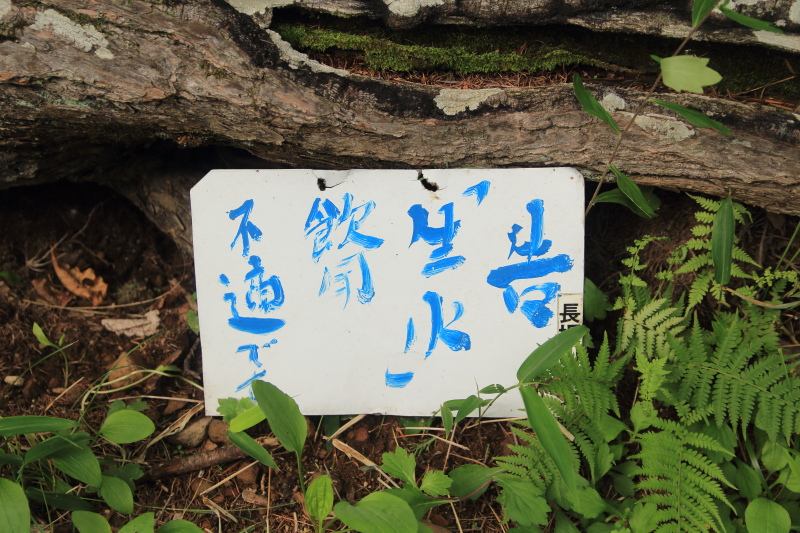 告
「生水」
飲用
不適です
長